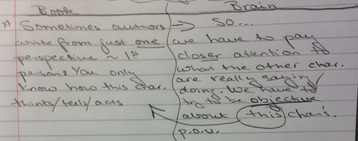 Book
Brain
* Sometimes authors → So...
write from just one
perspective ~ 1st
person. You only
know how this char.
thinks/feels/acts
we have to pay
closer attention to
what the other char.
are really saying/
doing. We have to
try to be objective
about this char's.
p.o.v.